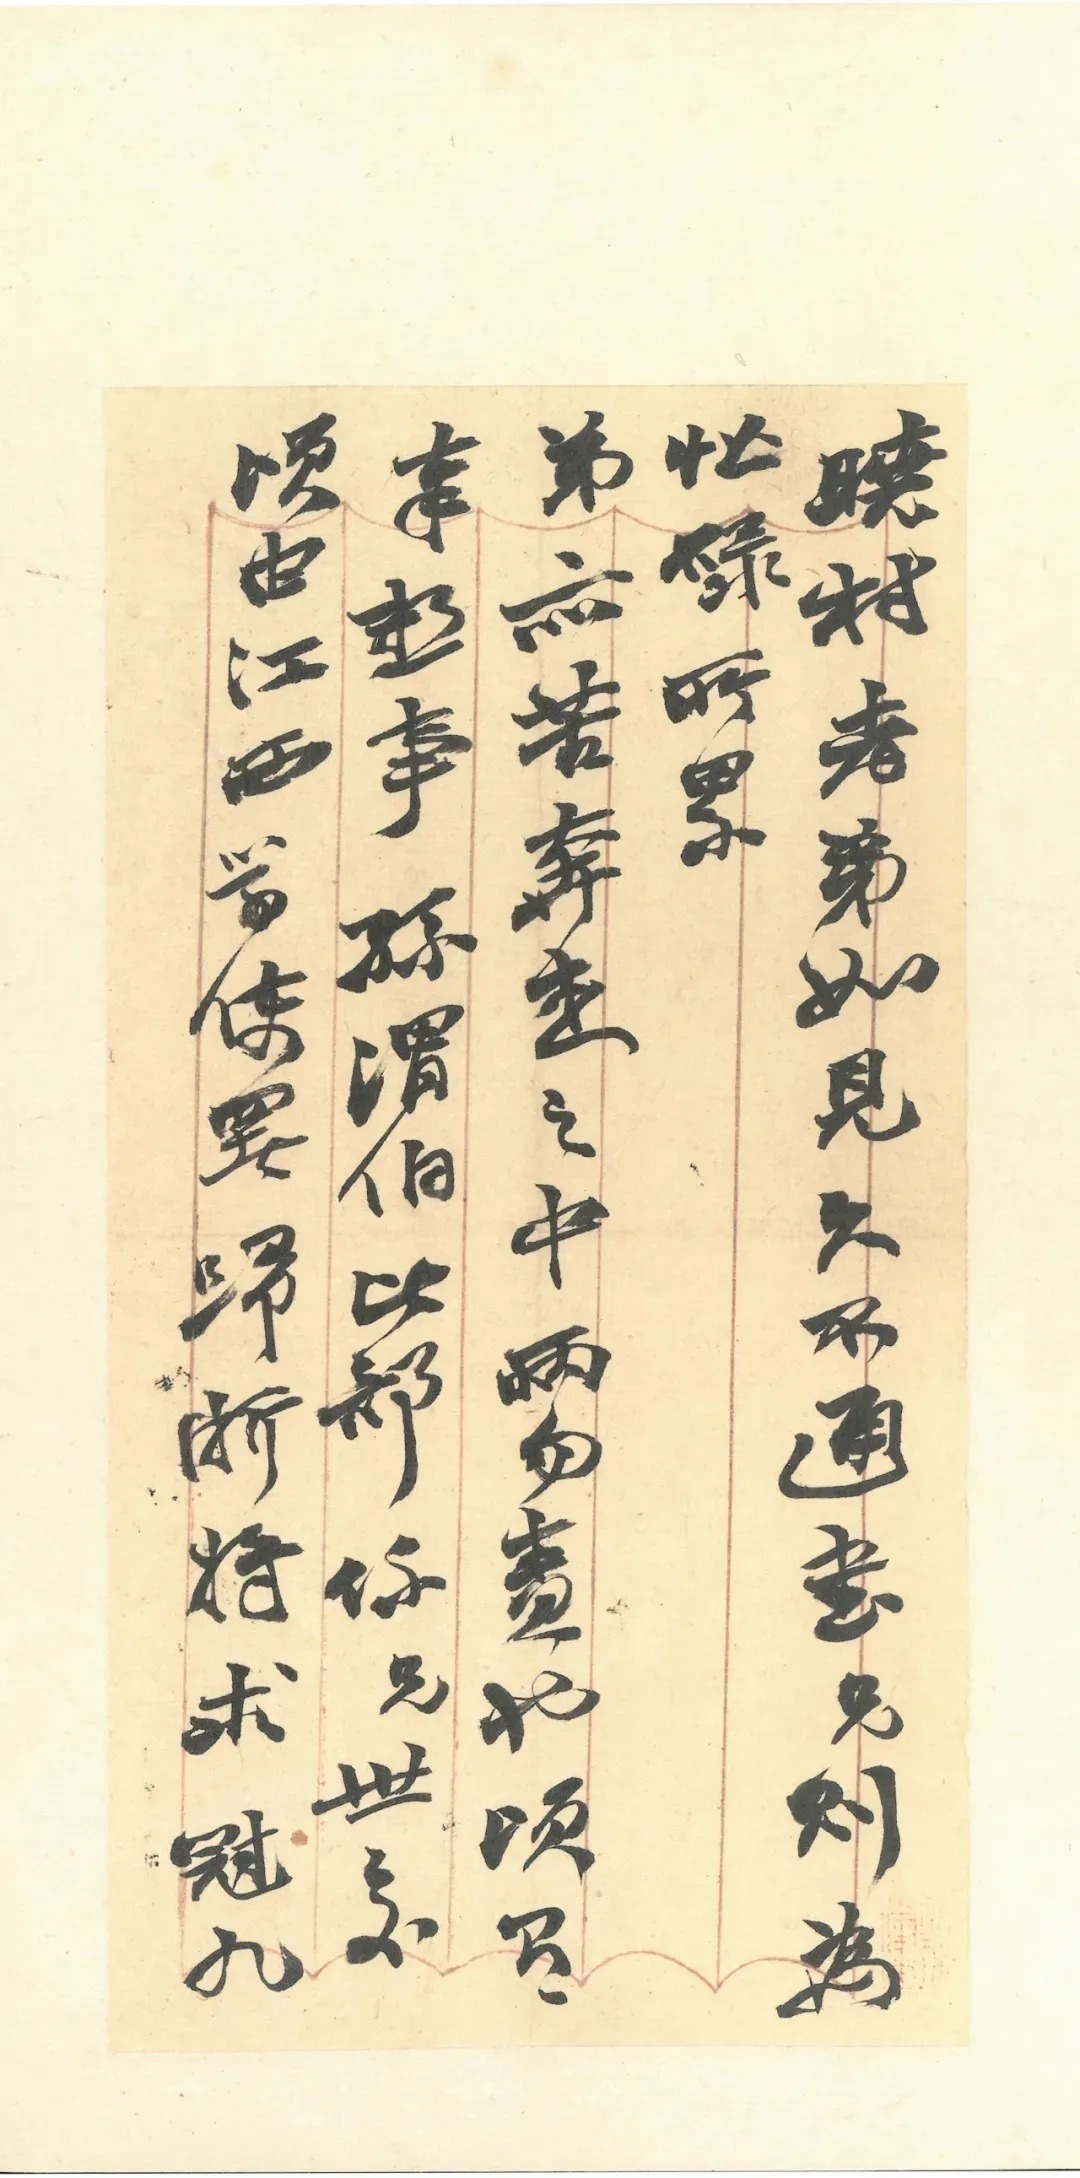 曉村老弟如見久不通書兄則為
忙碌所累
弟亦苦奔走之中兩勿責也頃有
奉懇事孫渭伯比部係兄世交
頃由江西當使罷歸浙將求冠九